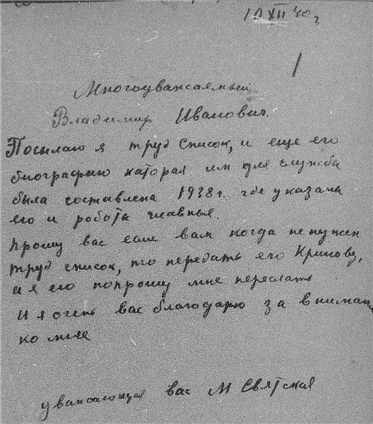 10 XII 40 г
1
Многоуважаемый
Владимир Иванович.
Посылаю я труд список, и еще его
биографию каторая им для служба
была составлена 1938 г. где указаны
его и работы главныя.
Прошу вас если вам когда не нужен
труд список, то передать его Кринову,
и я его попрошу мне переслать
и я очень вас благодарю за внимание
ко мне
уважающая вас М Святская